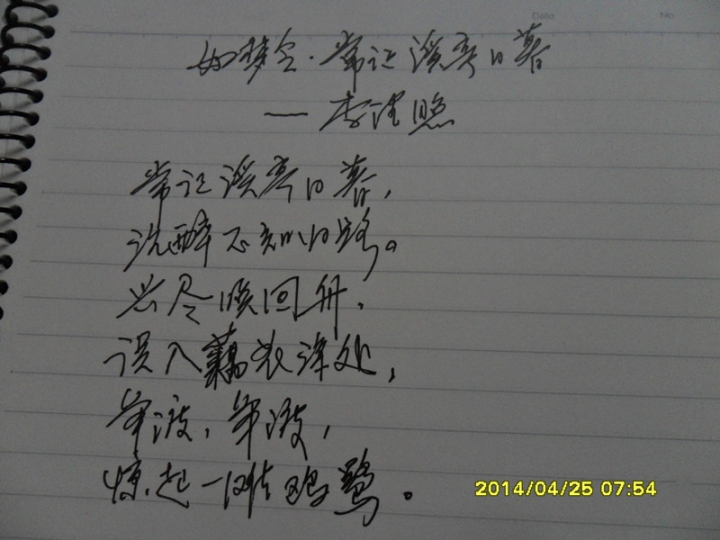 Date No
如梦令·常记溪亭日暮
——李清照
常记溪亭日暮,
沉醉不知归路。
兴尽晚回舟,
误入藕花深处,
争渡,争渡,
惊起一滩鸥鹭。
2014/04/25 07:54